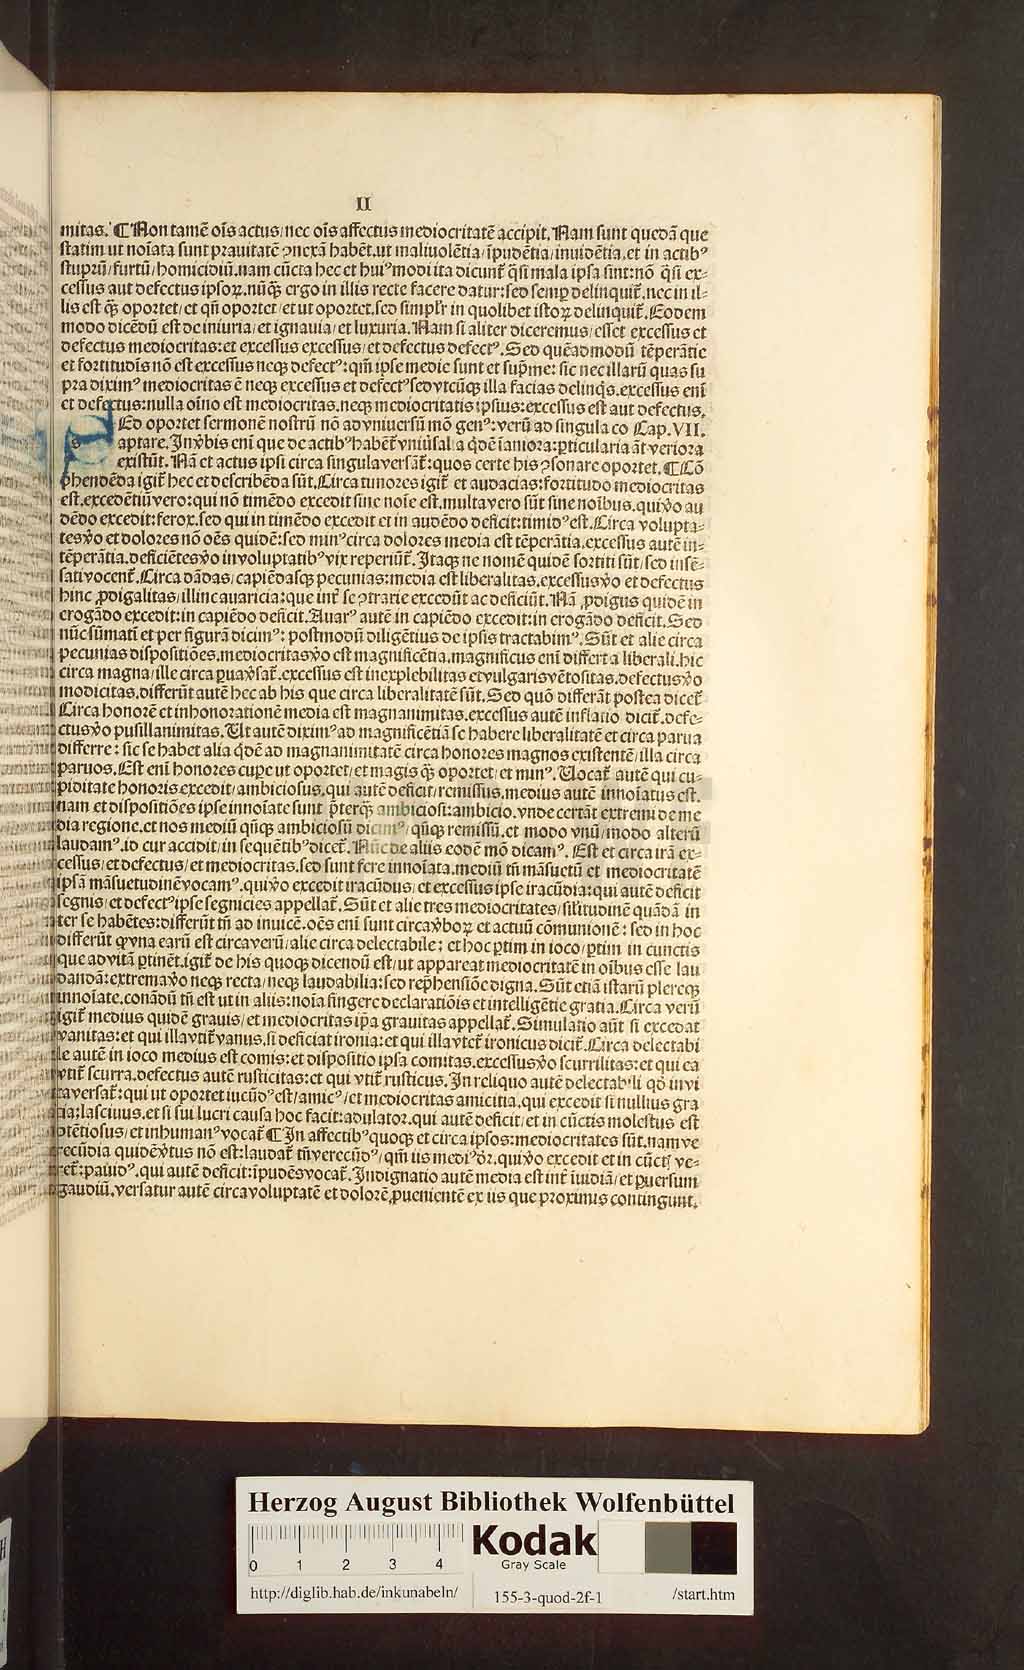 II
mitas. ¶ Non tamē oīs actus/nec oīs affectus mediocritatē accipit. Nam sunt quedā que
statim ut noīata sunt prauitatē ꝯnexā habēt. ut maliuolētia/īpudētia/inuidētia. et in actibꝰ
stuprū/furtū/homicidiū. nam cūcta hec et huiꝰmodi ita dicunt̃ q̈si mala ipsa sint: nō q̈si ex⸗
cessus aut defectus ipsoꝝ. nūq̃ ergo in illis recte facere datur: sed semꝑ delinquit̃. nec in il⸗
lis est q̃ oportet/et qñ oportet/et ut oportet. sed simpl̕r in quolibet istoꝝ delinquit̃. Eodem
modo dicēdū est de iniuria/et ignauia/et luxuria. Nam si aliter diceremus/esset excessus et
defectus mediocritas: et excessus excessus/et defectus defectꝰ. Sed quēadmodū tēperātie
et fortitudīs nō est excessus neqꝫ defectꝰ: qm̃ ipse medie sunt et sup̄me: sic nec illarū quas su
pra diximꝰ mediocritas ē neqꝫ excessus et defectꝰ sed vtcūqꝫ illa facias delinq̇s. excessus enī
et defectus: nulla oīno est mediocritas. neqꝫ mediocritatis ipsius: excessus est aut defectus.
SEd oportet sermonē nostrū nō ad vniuersū mō genꝰ: verū ad singula co Cap. VII.
aptare. In v̓bis enī que de actibꝰ habēt̃ vniu̓salia q̇dē īaniora: ꝑticularia āt veriora
existūt. Nā et actus ipsi circa singula versāt̃: quos certe his ꝯsonare oportet. ¶ Cō
p̄hendēda igit̃ hec et describēda sūt. Circa timores igit̃ et audacias: fortitudo mediocritas
est. excedētiū vero: qui nō timēdo excedit sine noīe est. multa vero sūt sine noībus. qui v̓o au
dēdo excedit: ferox. sed qui in timēdo excedit et in audēdo deficit: timidꝰ est. Circa volupta⸗
tes v̓o et dolores nō oēs quidē: sed minꝰ circa dolores media est tēperātia. excessus autē in⸗
tēperātia. deficiētes v̓o in voluptatibꝰ vix reperiūt̃. Itaqꝫ ne nomē quidē sortiti sūt/sed insē⸗
sati vocent̃. Circa dādas/capiēdasqꝫ pecunias: media est liberalitas. excessus v̓o et defectus
hinc ꝓdigalitas/illinc auaricia: que int̃ se ꝯtrarie excedūt ac deficiūt. Nā ꝓdigus quidē in
erogādo excedit: in capiēdo deficit. Auarꝰ autē in capiēdo excedit: in erogādo deficit. Sed
nūc sūmatī et per figurā dicimꝰ: postmodū diligētius de ipsis tractabimꝰ. Sūt et alie circa
pecunias dispositiōes. mediocritas v̓o est magnificētia. magnificus enī differt a liberali. hic
circa magna/ille circa ꝑua v̓sat̃. excessus est inexplebilitas et vulgaris vētositas. defectus v̓o
modicitas. differūt autē hec ab his que circa liberalitatē sūt. Sed quō differāt postea dicet̃
Circa honorē et inhonorationē media est magnanimitas. excessus autē inflatio dicit̃. defe⸗
ctus v̓o pusillanimitas. Ut autē diximꝰ ad magnificētiā se habere liberalitatē et circa parua
differre: sic se habet alia q̇dē ad magnanimitatē circa honores magnos existentē/illa circa
paruos. Est enī honores cuꝑe ut oportet/et magis q̃ oportet/et minꝰ. Uocat̃ autē qui cu⸗
piditate honoris excedit/ambiciosus. qui autē deficit/remissus. medius autē innoīatus est.
nam et dispositiōes ipse innoīate sunt p̄terq̃ ambiciosi: ambicio. vnde certāt extremi de me
dia regione. et nos mediū qñqꝫ ambiciosū dicimꝰ/qñqꝫ remissū. et modo vnū/modo alterū
laudamꝰ. id cur accidit/in sequētibꝰ dicet̃. Nūc de aliis eodē mō dicamꝰ. Est et circa irā ex⸗
cessus/et defectus/et mediocritas. sed sunt fere innoīata. mediū tñ māsuetū et mediocritatē
ipsā māsuetudinē vocamꝰ. qui v̓o excedit iracūdus/et excessus ipse iracūdia: qui autē deficit
segnis/et defectꝰ ipse segnicies appellat̃. Sūt et alie tres mediocritates/sil̕itudinē quādā in
ter se habētes: differūt tñ ad inuicē. oēs enī sunt circa v̓boꝝ et actuū cōmunionē: sed in hoc
differūt ꝙ vna earū est circa verū/alie circa delectabile: et hoc ꝑtim in ioco/ꝑtim in cunctis
que ad vitā ꝑtinēt. igit̃ de his quoqꝫ dicendū est/ut appareat mediocritatē in oībus esse lau
dandā: extrema v̓o neqꝫ recta/neqꝫ laudabilia: sed rep̄hensiōe digna. Sūt etiā istarū plereqꝫ
innoīate. conādū tñ est ut in aliis: noīa fingere declaratiōis et intelligētie gratia. Circa verū
igit̃ medius quidē grauis/et mediocritas ip̄a grauitas appellat̃. Simulatio aūt si excedat
vanitas: et qui illa vtit̃ vanus. si deficiat ironia: et qui illa vtet̃ ironicus dicit̃. Circa delectabi
le autē in ioco medius est comis: et dispositio ipsa comitas. excessus v̓o scurrilitas: et qui ea
vtit̃ scurra. defectus autē rusticitas: et qui vtit̃ rusticus. In reliquo autē delectabili qd̓ in vi
ta versat̃: qui ut oportet iucūdꝰ est/amicꝰ/et mediocritas amicitia. qui excedit si nullius gra
tia: lasciuus. et si sui lucri causa hoc facit: adulator. qui autē deficit/et in cūctis molestus est
ꝯtētiosus/et inhumanꝰ vocat̃ ¶ In affectibꝰ quoqꝫ et circa ipsos: mediocritates sūt. nam ve
recūdia quidē v̓tus nō est: laudat̃ tñ verecūdꝰ/qm̃ iis mediꝰ dr̃. qui v̓o excedit et in cūctis ve⸗
ret̃: pauidꝰ. qui autē deficit: īpudēs vocat̃. Indignatio autē media est int̃ īuidiā/et ꝑuersum
gaudiū. versatur autē circa voluptatē et dolorē ꝓuenientē ex iis que proximis contingunt.
Herzog August Bibliothek Wolfenbüttel
0 1 2 3 4
Kodak
Gray Scale
http://diglib.hab.de/inkunabeln/ 155-3-quod-2f-1 /start.htm